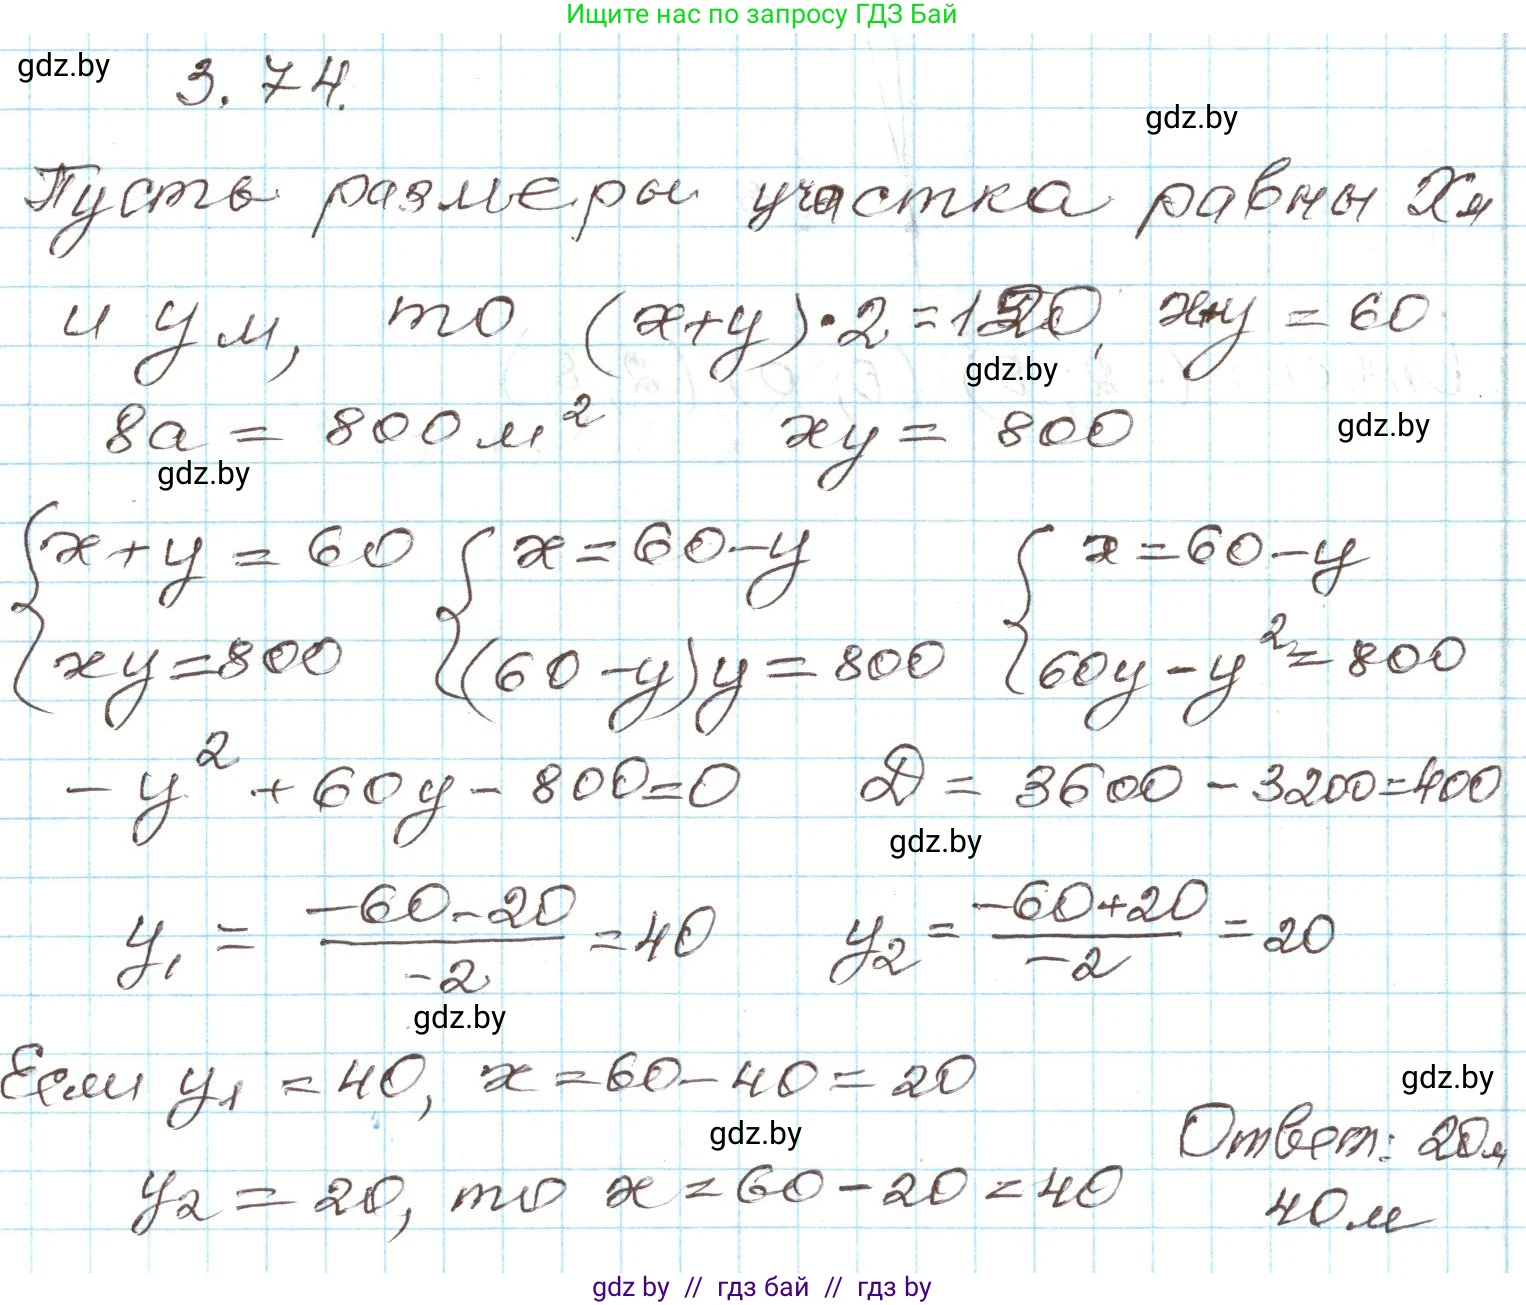 Ищите нас по запросу ГДЗ Бай
gdz.by
3.74.
gdz.by
Пусть размеры участка равны x м
и y м, то (x+y)·2=120, x+y=60
gdz.by
8a = 800 м² xy = 800
gdz.by
gdz.by
{x+y=60 {x=60-y {x=60-y
{xy=800 {(60-y)y=800 {60y-y²=800
-y²+60y-800=0 D = 3600-3200=400
gdz.by
y₁ = (-60-20)/(-2) = 40 y₂ = (-60+20)/(-2) = 20
gdz.by
Если y₁=40, x=60-40=20
gdz.by
gdz.by
Ответ: 20м,
y₂=20, то x=60-20=40
40м
gdz by // гдз бай // гдз by